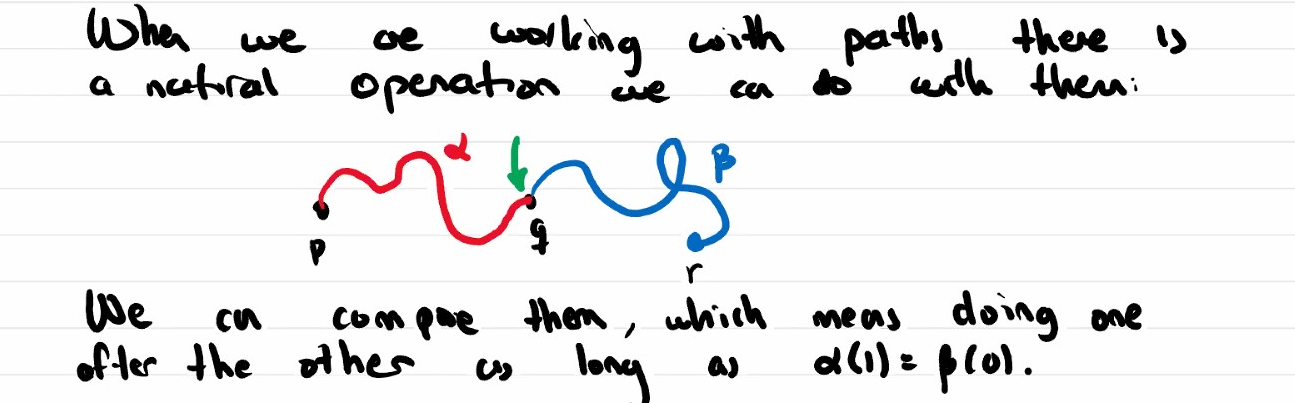 When we are working with paths there is
a natural operation we can do with them:
α β
p q r
We can compose them, which means doing one
after the other as long as α(1) = β(0).